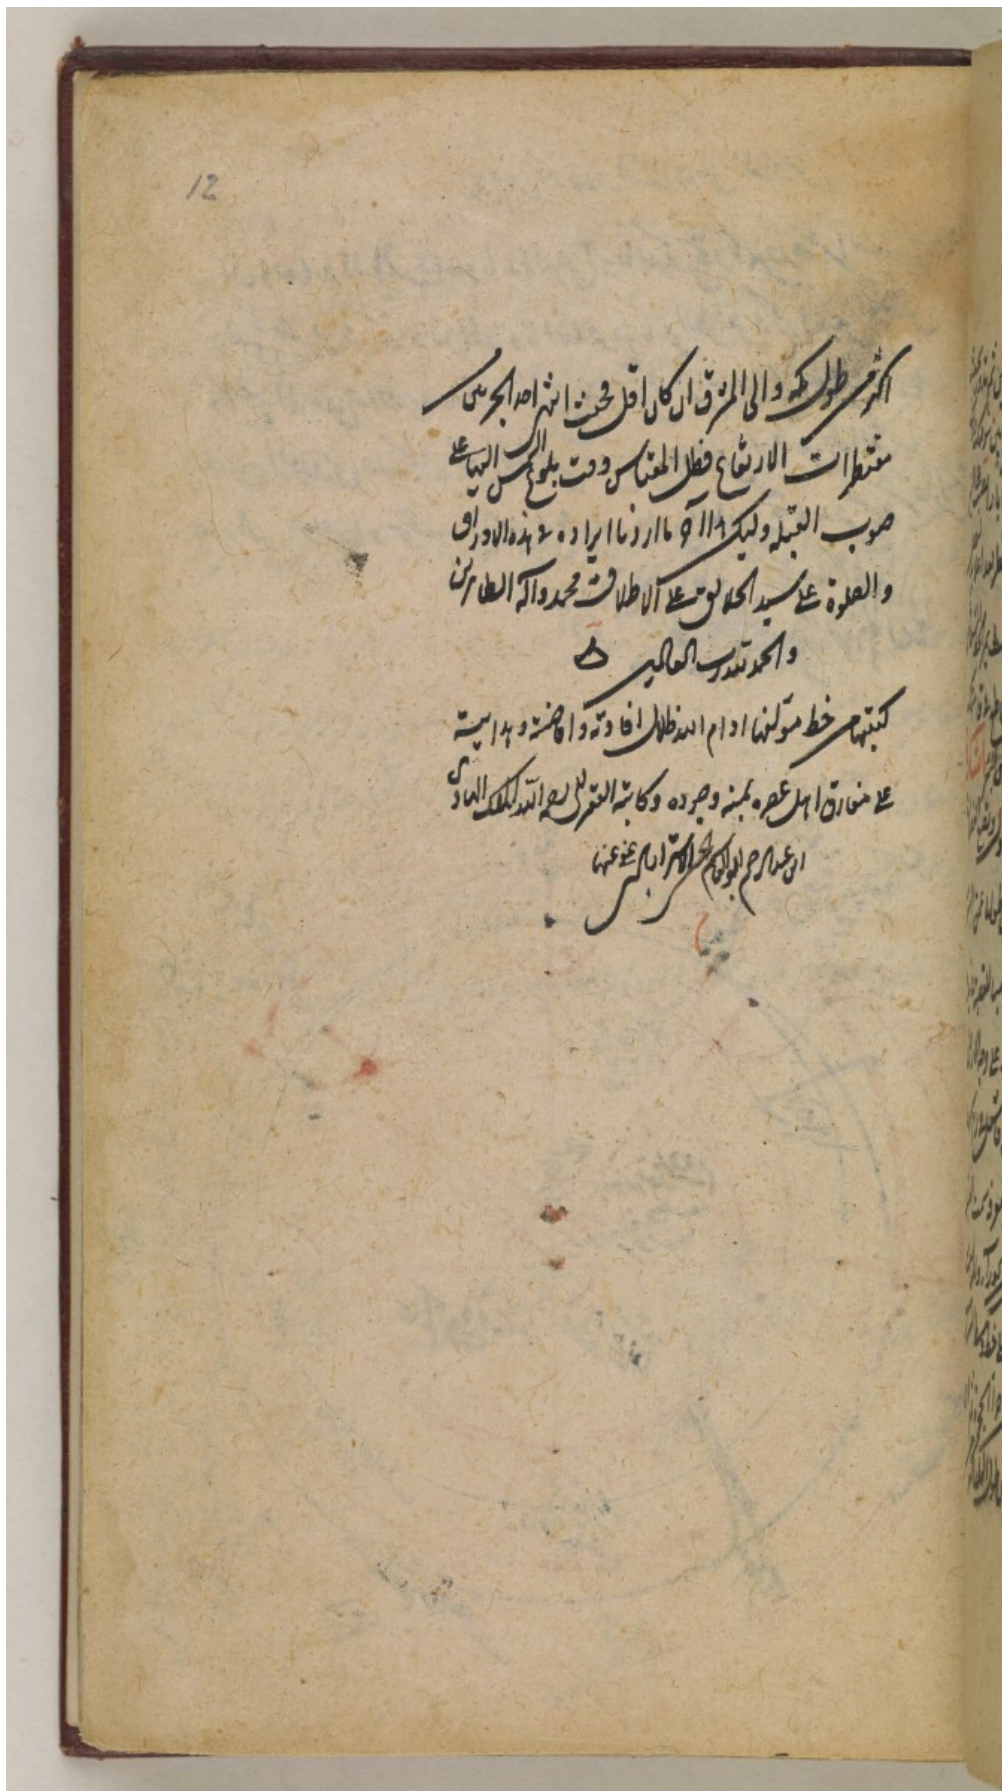 12
اكثر من طول مكه والى المشرق ان كان اقل فحيث انتهى احد الجزئين من
مقنطرات الارتفاع فظل المقياس وقت بلوغ الشمس اليها على
صوب القبله وليكن هذا آخر ما اردنا ايراده فى هذه الاوراق
والصلوة على سيد الخلايق على الاطلاق محمد وآله الطاهرين
والحمد لله رب العالمين
كتبتها من خط مؤلفها ادام الله ظلال افادته وافاضته وهدايته
على مفارق اهل عصره بمنه وجوده وكاتبه الفقير الى الله الملك الهادى
ابن عبد الرحيم ابو القاسم عفى عنهما